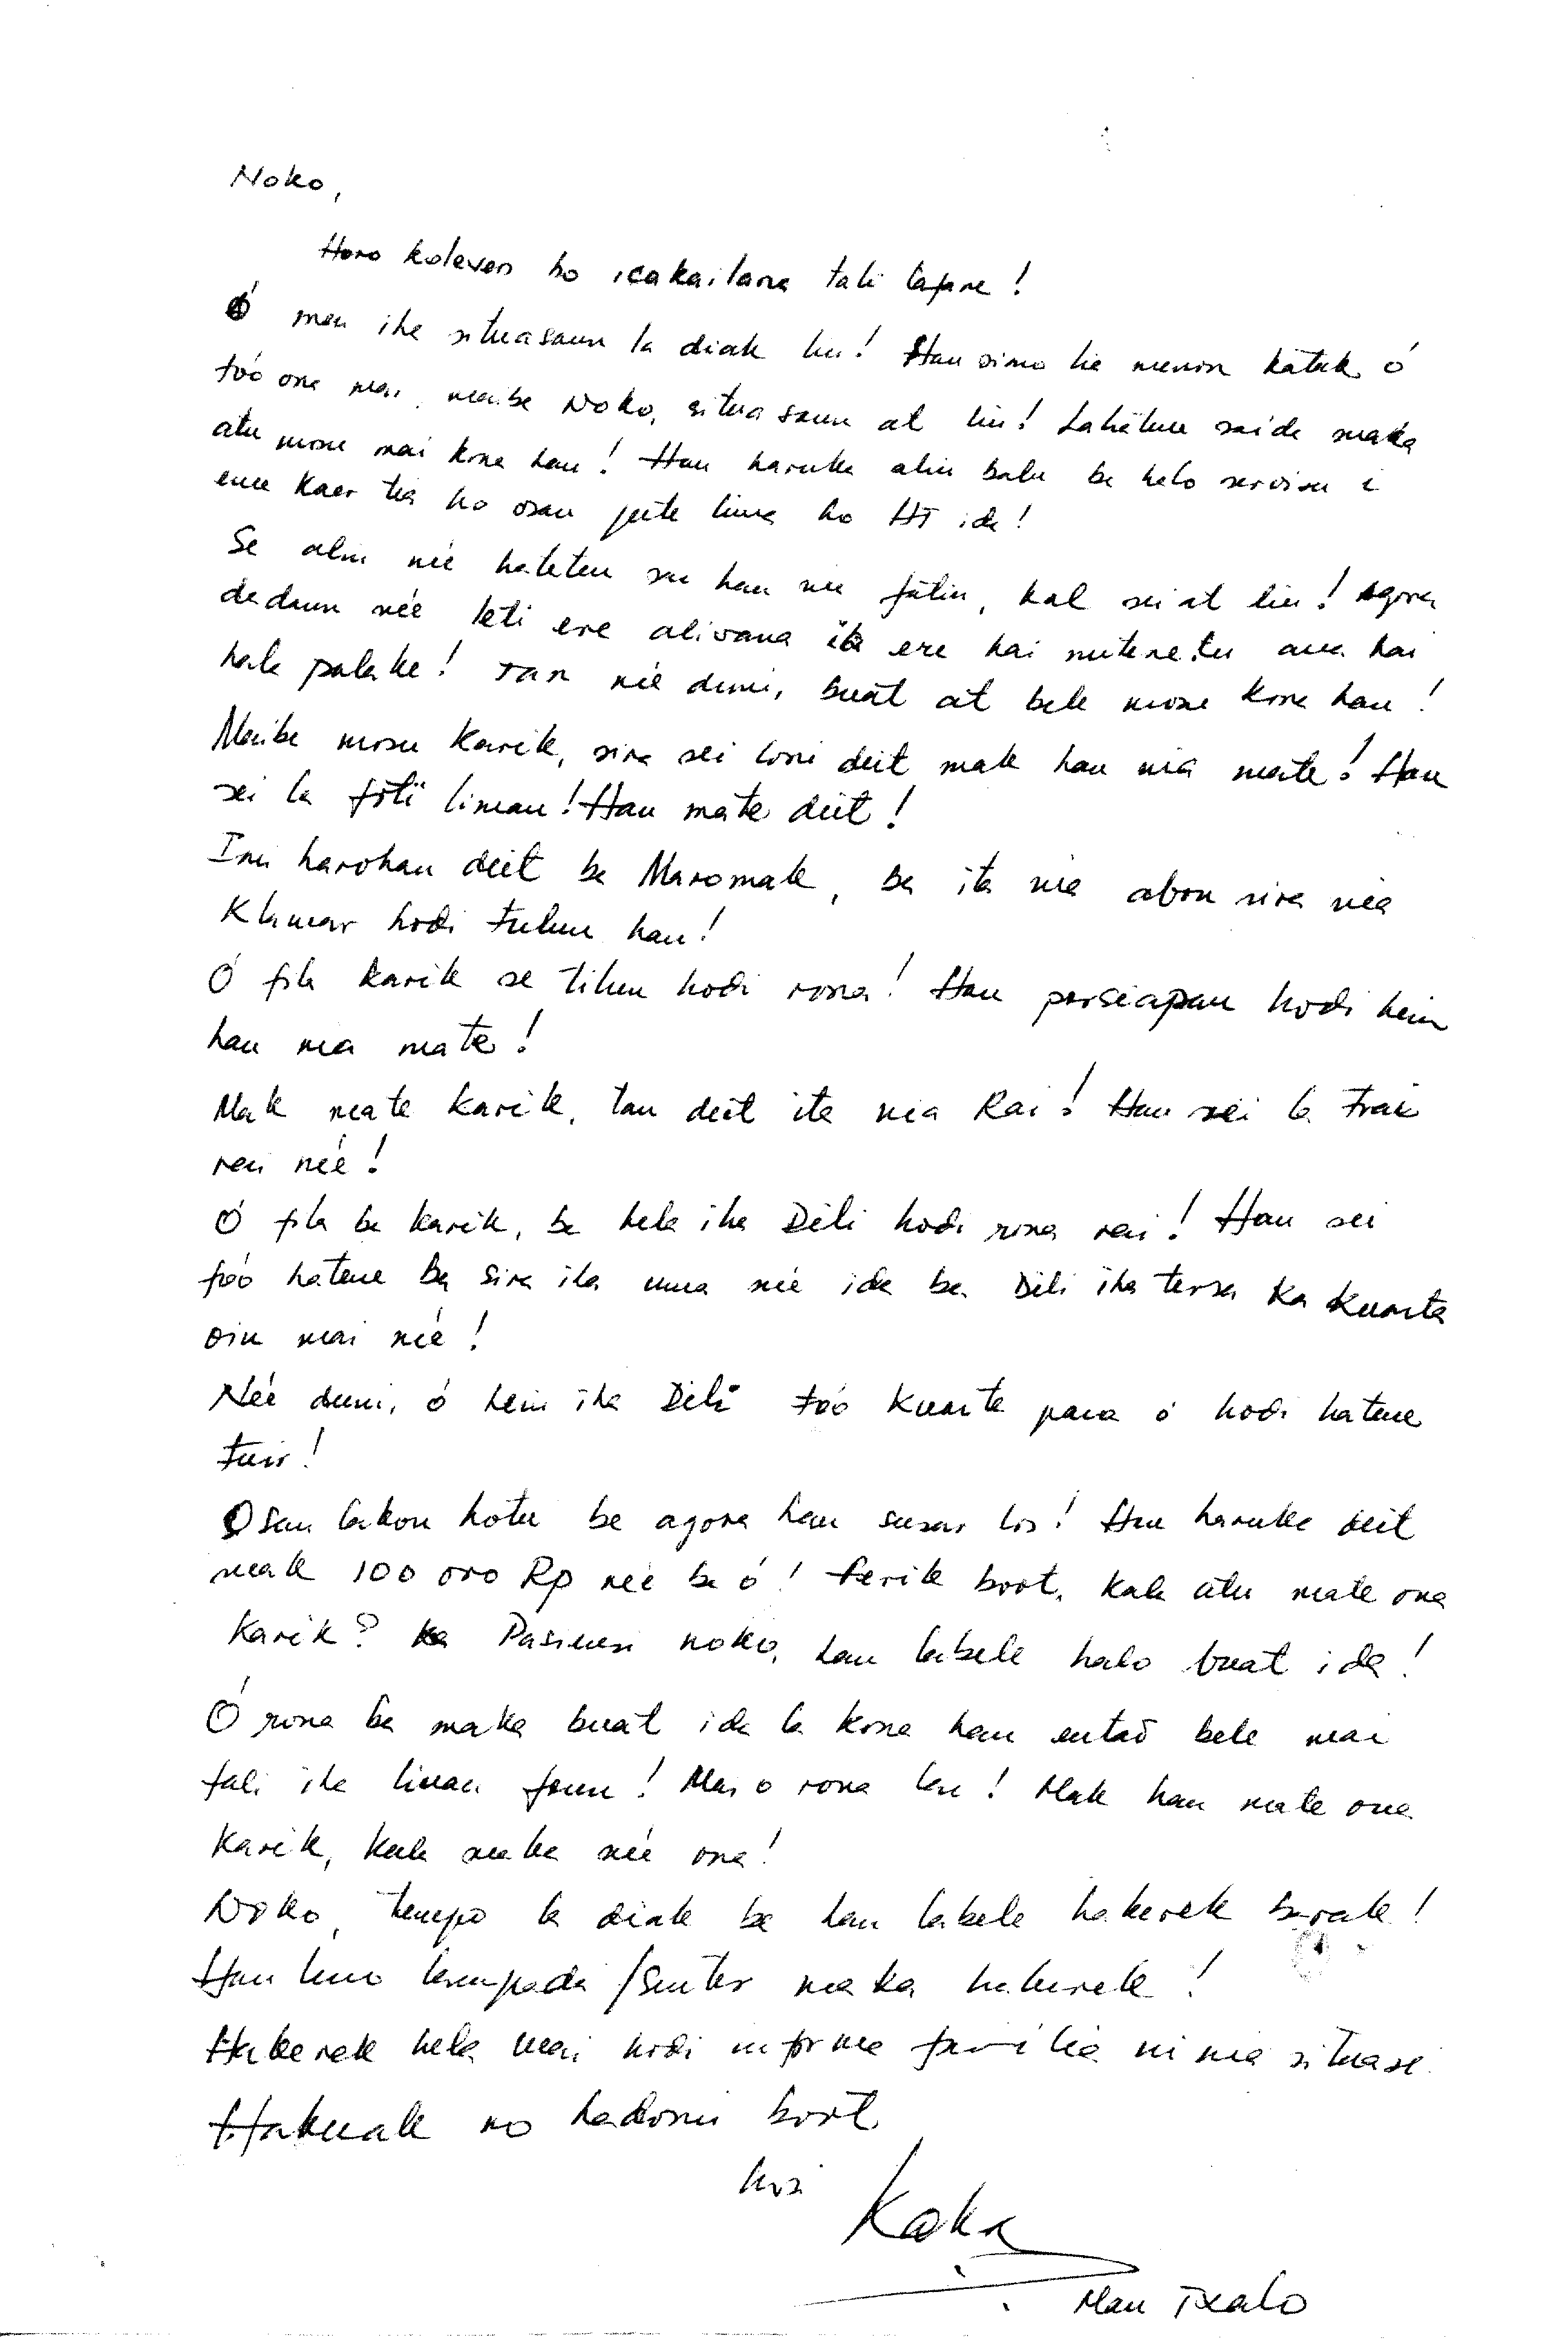 Noko,
Horo kolever ho icakailana tali lafane!
Ó mai iha situasaun la diak liu! Hau simo lia menon katak ó
tóo ona mai, maibe Noko, situasaun at liu! Lahetuu saida maka
atu mosu mai kona hau! Hau haruka alin balu ba halo servisu i
ema kaer tia ho osan juta lima ho HT ida!
Se alin née hatetu sai hau nia fatin, kal sei at liu! Agora
dadaun née leti ere alivana ere hai mitene.tu ana hai
hale palake! Tan née duni, buat at bele mosu kona hau!
Maibe mosu karik, sira sei lori deit mak hau nia mate! Hau
sei la foti liman! Hau mate deit!
Imi harohan deit ba Maromak, ba ita nia abon sira nia
Klamar hodi tulun hau!
Ó fila karik se tilun hodi rona! Hau persiapan hodi hein
hau nia mate!
Mak mate karik, tau deit ita nia Rai! Hau sei la trai
rai née!
Ó fila ba karik, ba hela iha Dili hodi rona rai! Hau sei
fóo hatene ba sira iha uma née ida ba Dili iha tersa ka kuarta
oin mai née!
Née duni, ó hein iha Dili tóo kuarta para ó hodi hatene
tuir!
Osan lakon hotu be agora hau susar los! Hau haruka deit
mak 100 000 Rp née ba ó! Ferik boot, kala atu mate ona
karik? Pasiensi noko, hau labele halo buat ida!
Ó rona ba maka buat ida la kona hau entaõ bele mai
fali iha liman foun! Mas o rona lai! Mak hau mate ona
karik, kala maka née ona!
Noko, tempo la diak be hau labele hakerek barak!
Hau lino lampada/senter maka hakerek!
Hakerek hela mai hodi informa familia ni nia situasi.
Hakuak no hadomi boot
husi
Kaka
Mau Txalo